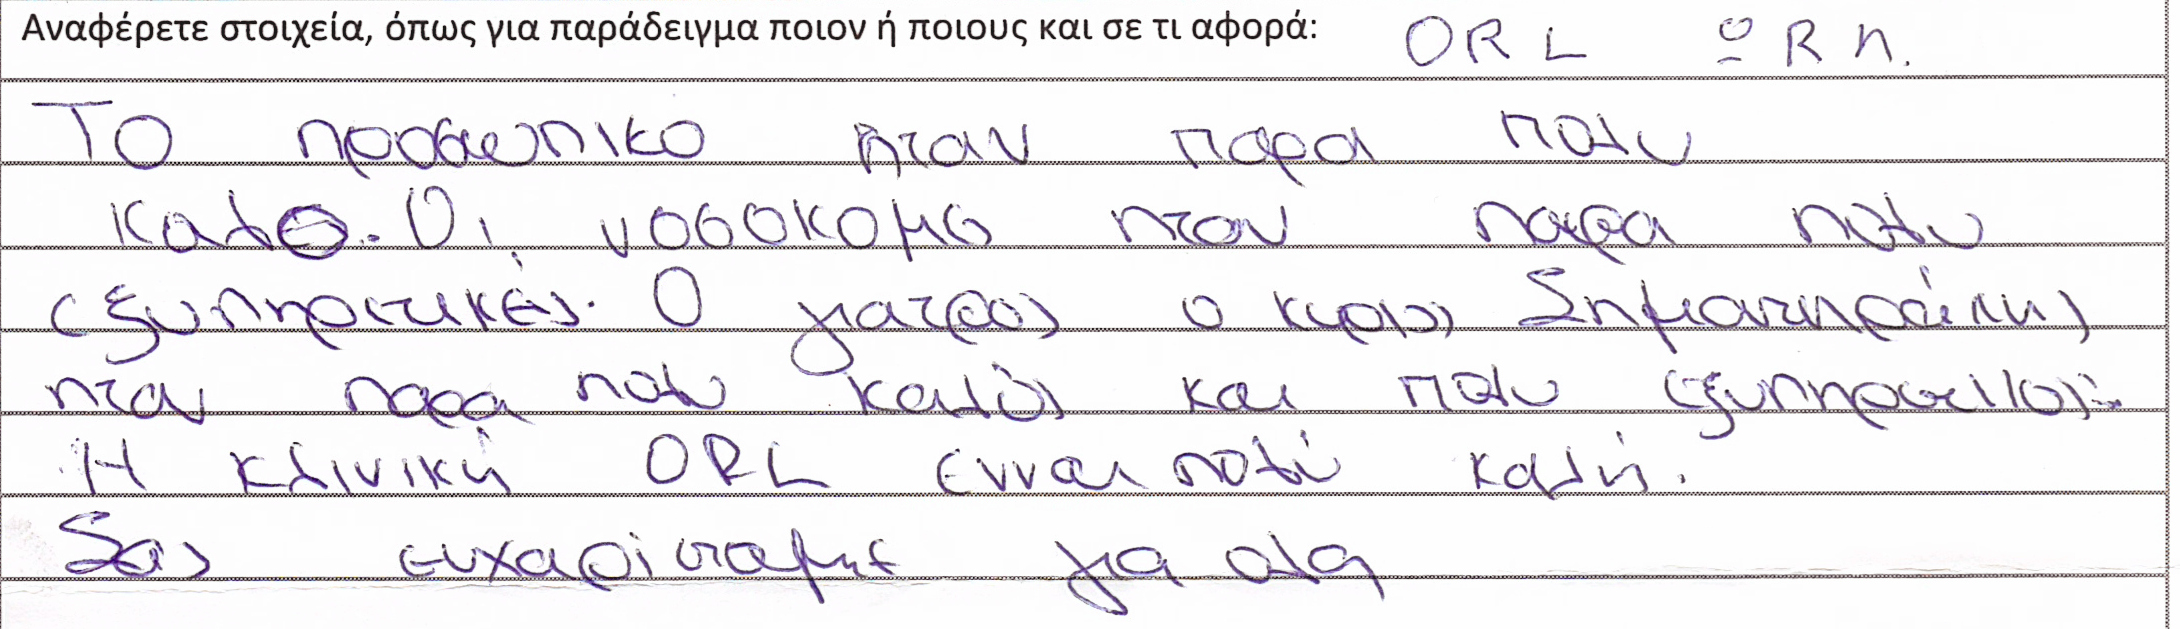 Αναφέρετε στοιχεία, όπως για παράδειγμα ποιον ή ποιους και σε τι αφορά: ORL ΩRΛ.
Το προσωπικο ήταν παρα πολυ
καλο. Οι νοσοκομο ηταν παρα πολυ
εξυπηρετικές. Ο γιατρος ο κυριος
ηταν παρα πολυ καλός και πολυ εξυπηρετικος.
Η κλινική ORL ενναι πολύ καλή.
Σας ευχαρίσταμηε για ολα